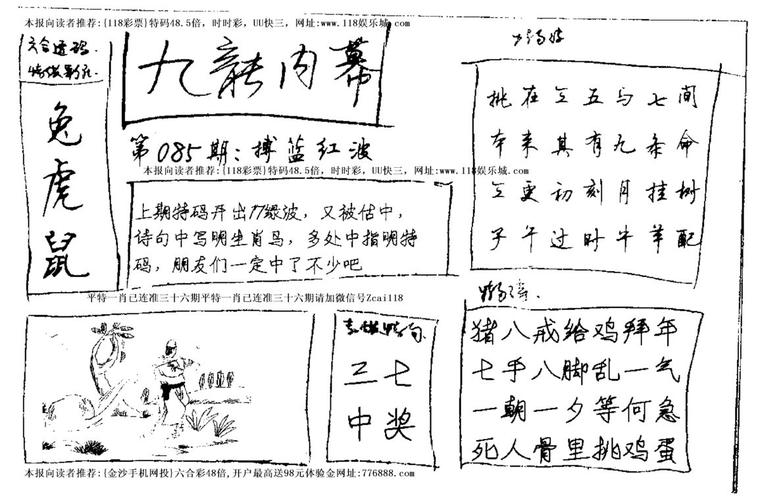 本报向读者推荐:{118彩票}特码48.5倍，时时彩，UU快三，网址:www.118娱乐城.com
六合透码
兔
虎
鼠
九龍内幕
第085期：搏蓝红波
本报向读者推荐:{118彩票}特码48.5倍，时时彩，UU快三，网址:www.118娱乐城.com
上期特码开出77绿波，又被估中，
诗句中写明生肖马，多处中指明特
码，朋友们一定中了不少吧
平特一肖已连准三十六期平特一肖已连准三十六期请加微信号Zcai118
三七
中奖
挑在立五与七间
本来其有九条命
立更初刻月挂树
子午过时牛羊配
猪八戒给鸡拜年
七手八脚乱一气
一朝一夕等何急
死人骨里挑鸡蛋
本报向读者推荐:{金沙手机网投}六合彩48倍,开户最高送98元体验金网址:776888.com